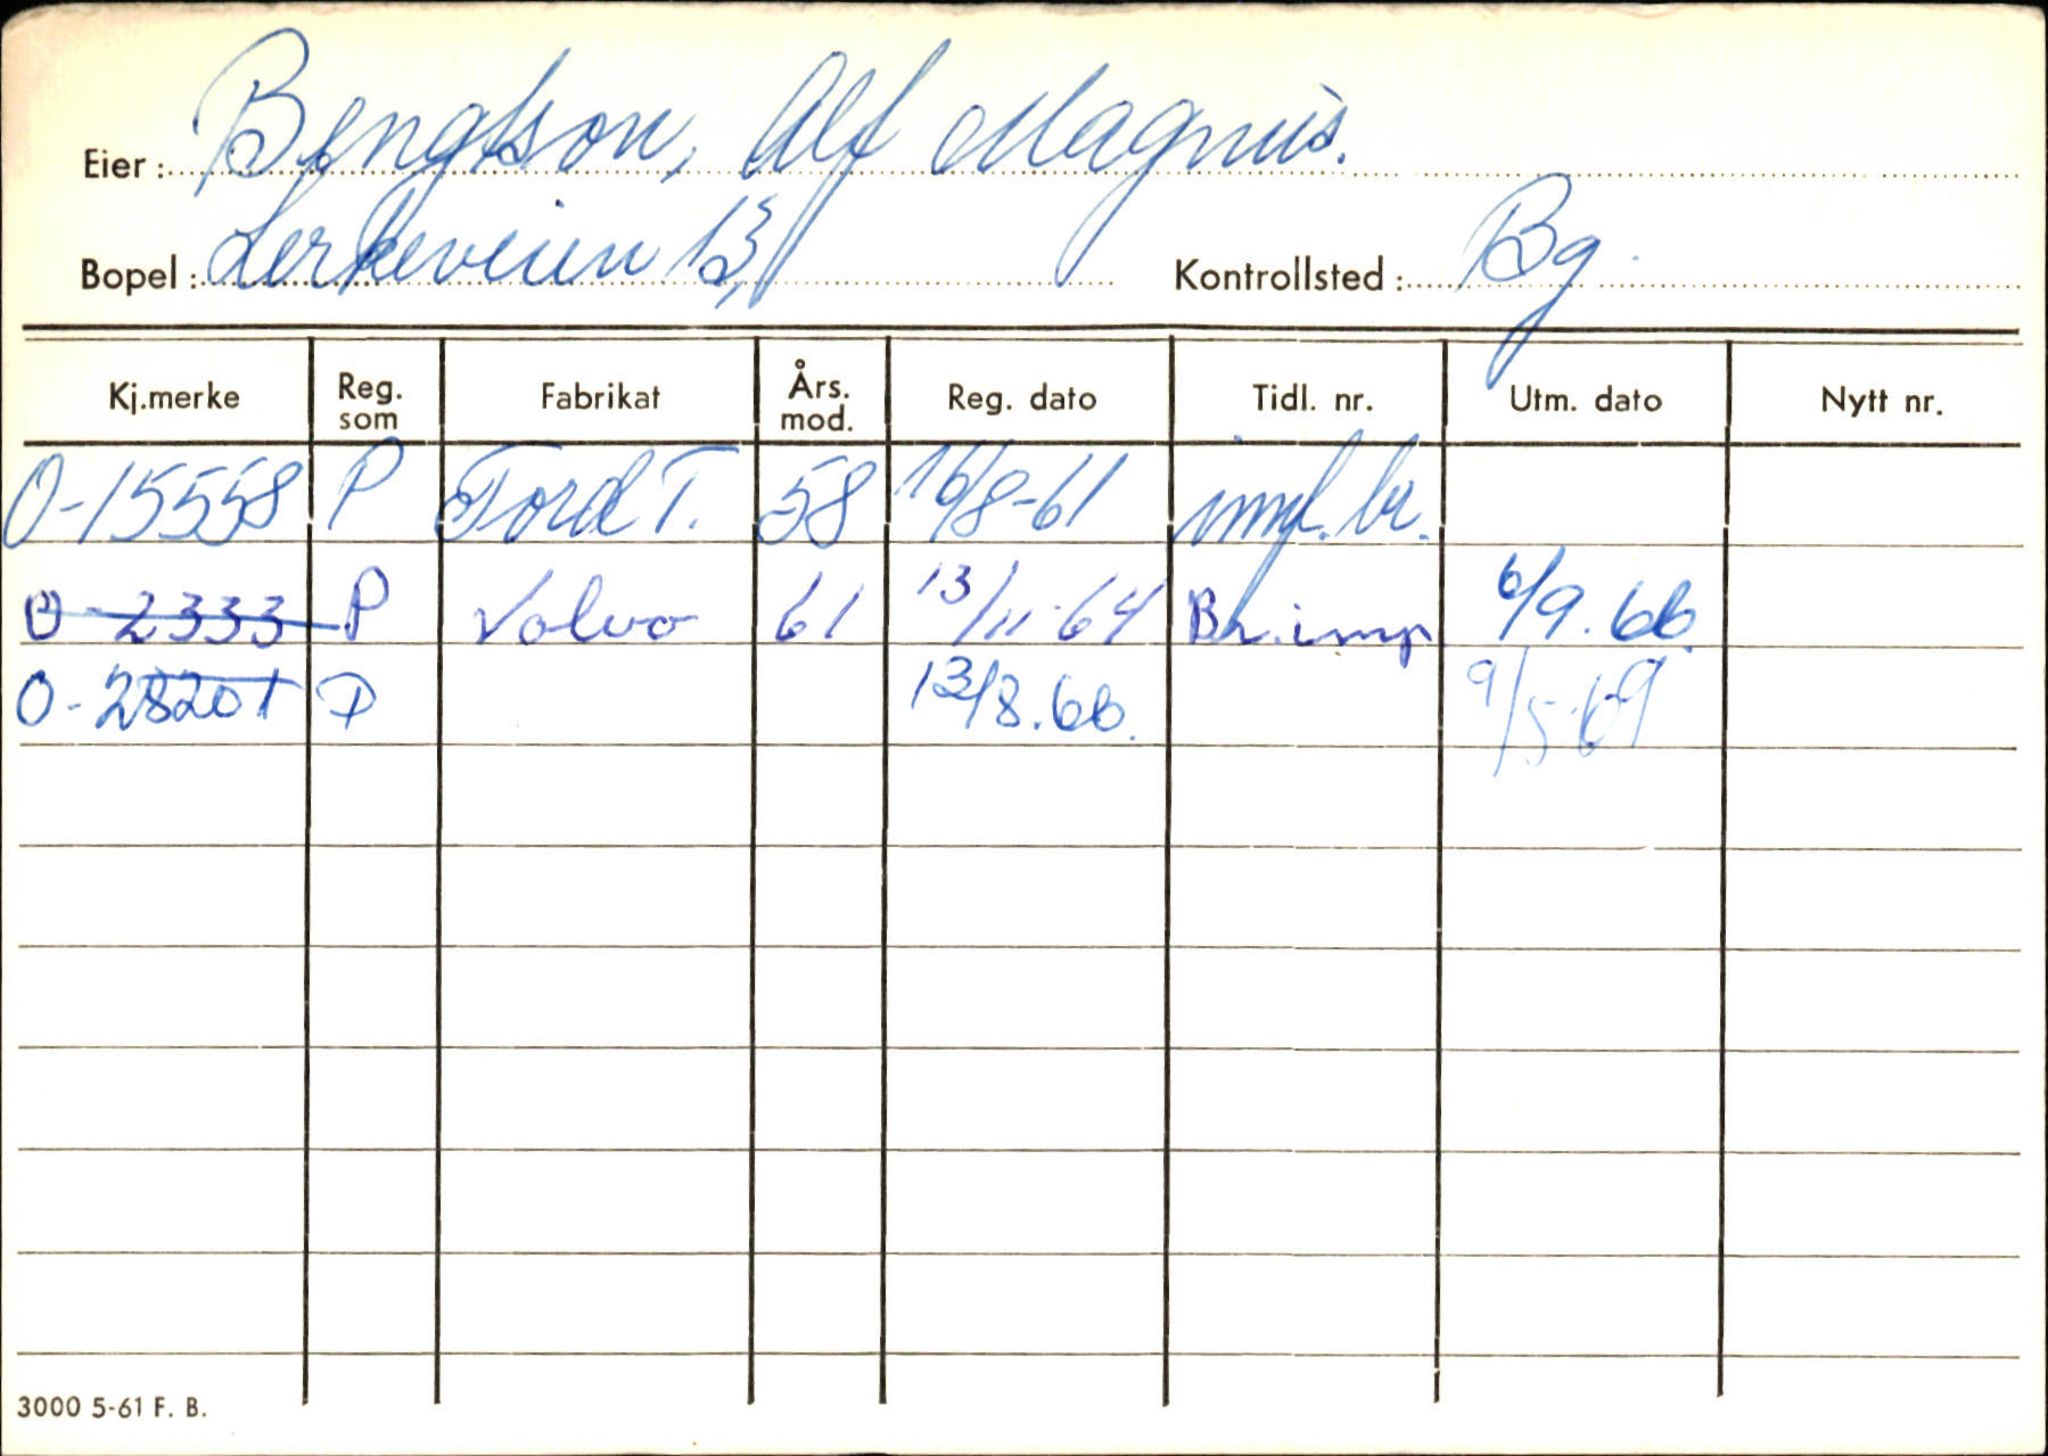 Eier: Bengtson, Alf Magnus.
Bopel: Lerkeveien 13, Kontrollsted: Bg.
Kj.merke Reg. som Fabrikat Års. mod. Reg. dato Tidl. nr. Utm. dato Nytt nr.
O-15558 P Ford T. 58 16/8-61 impf. br.
O-2333 P Volvo 61 13/11-64 Br.imp 6/9.66.
O-28201 P 13/8.66. 9/5-69
3000 5-61 F. B.